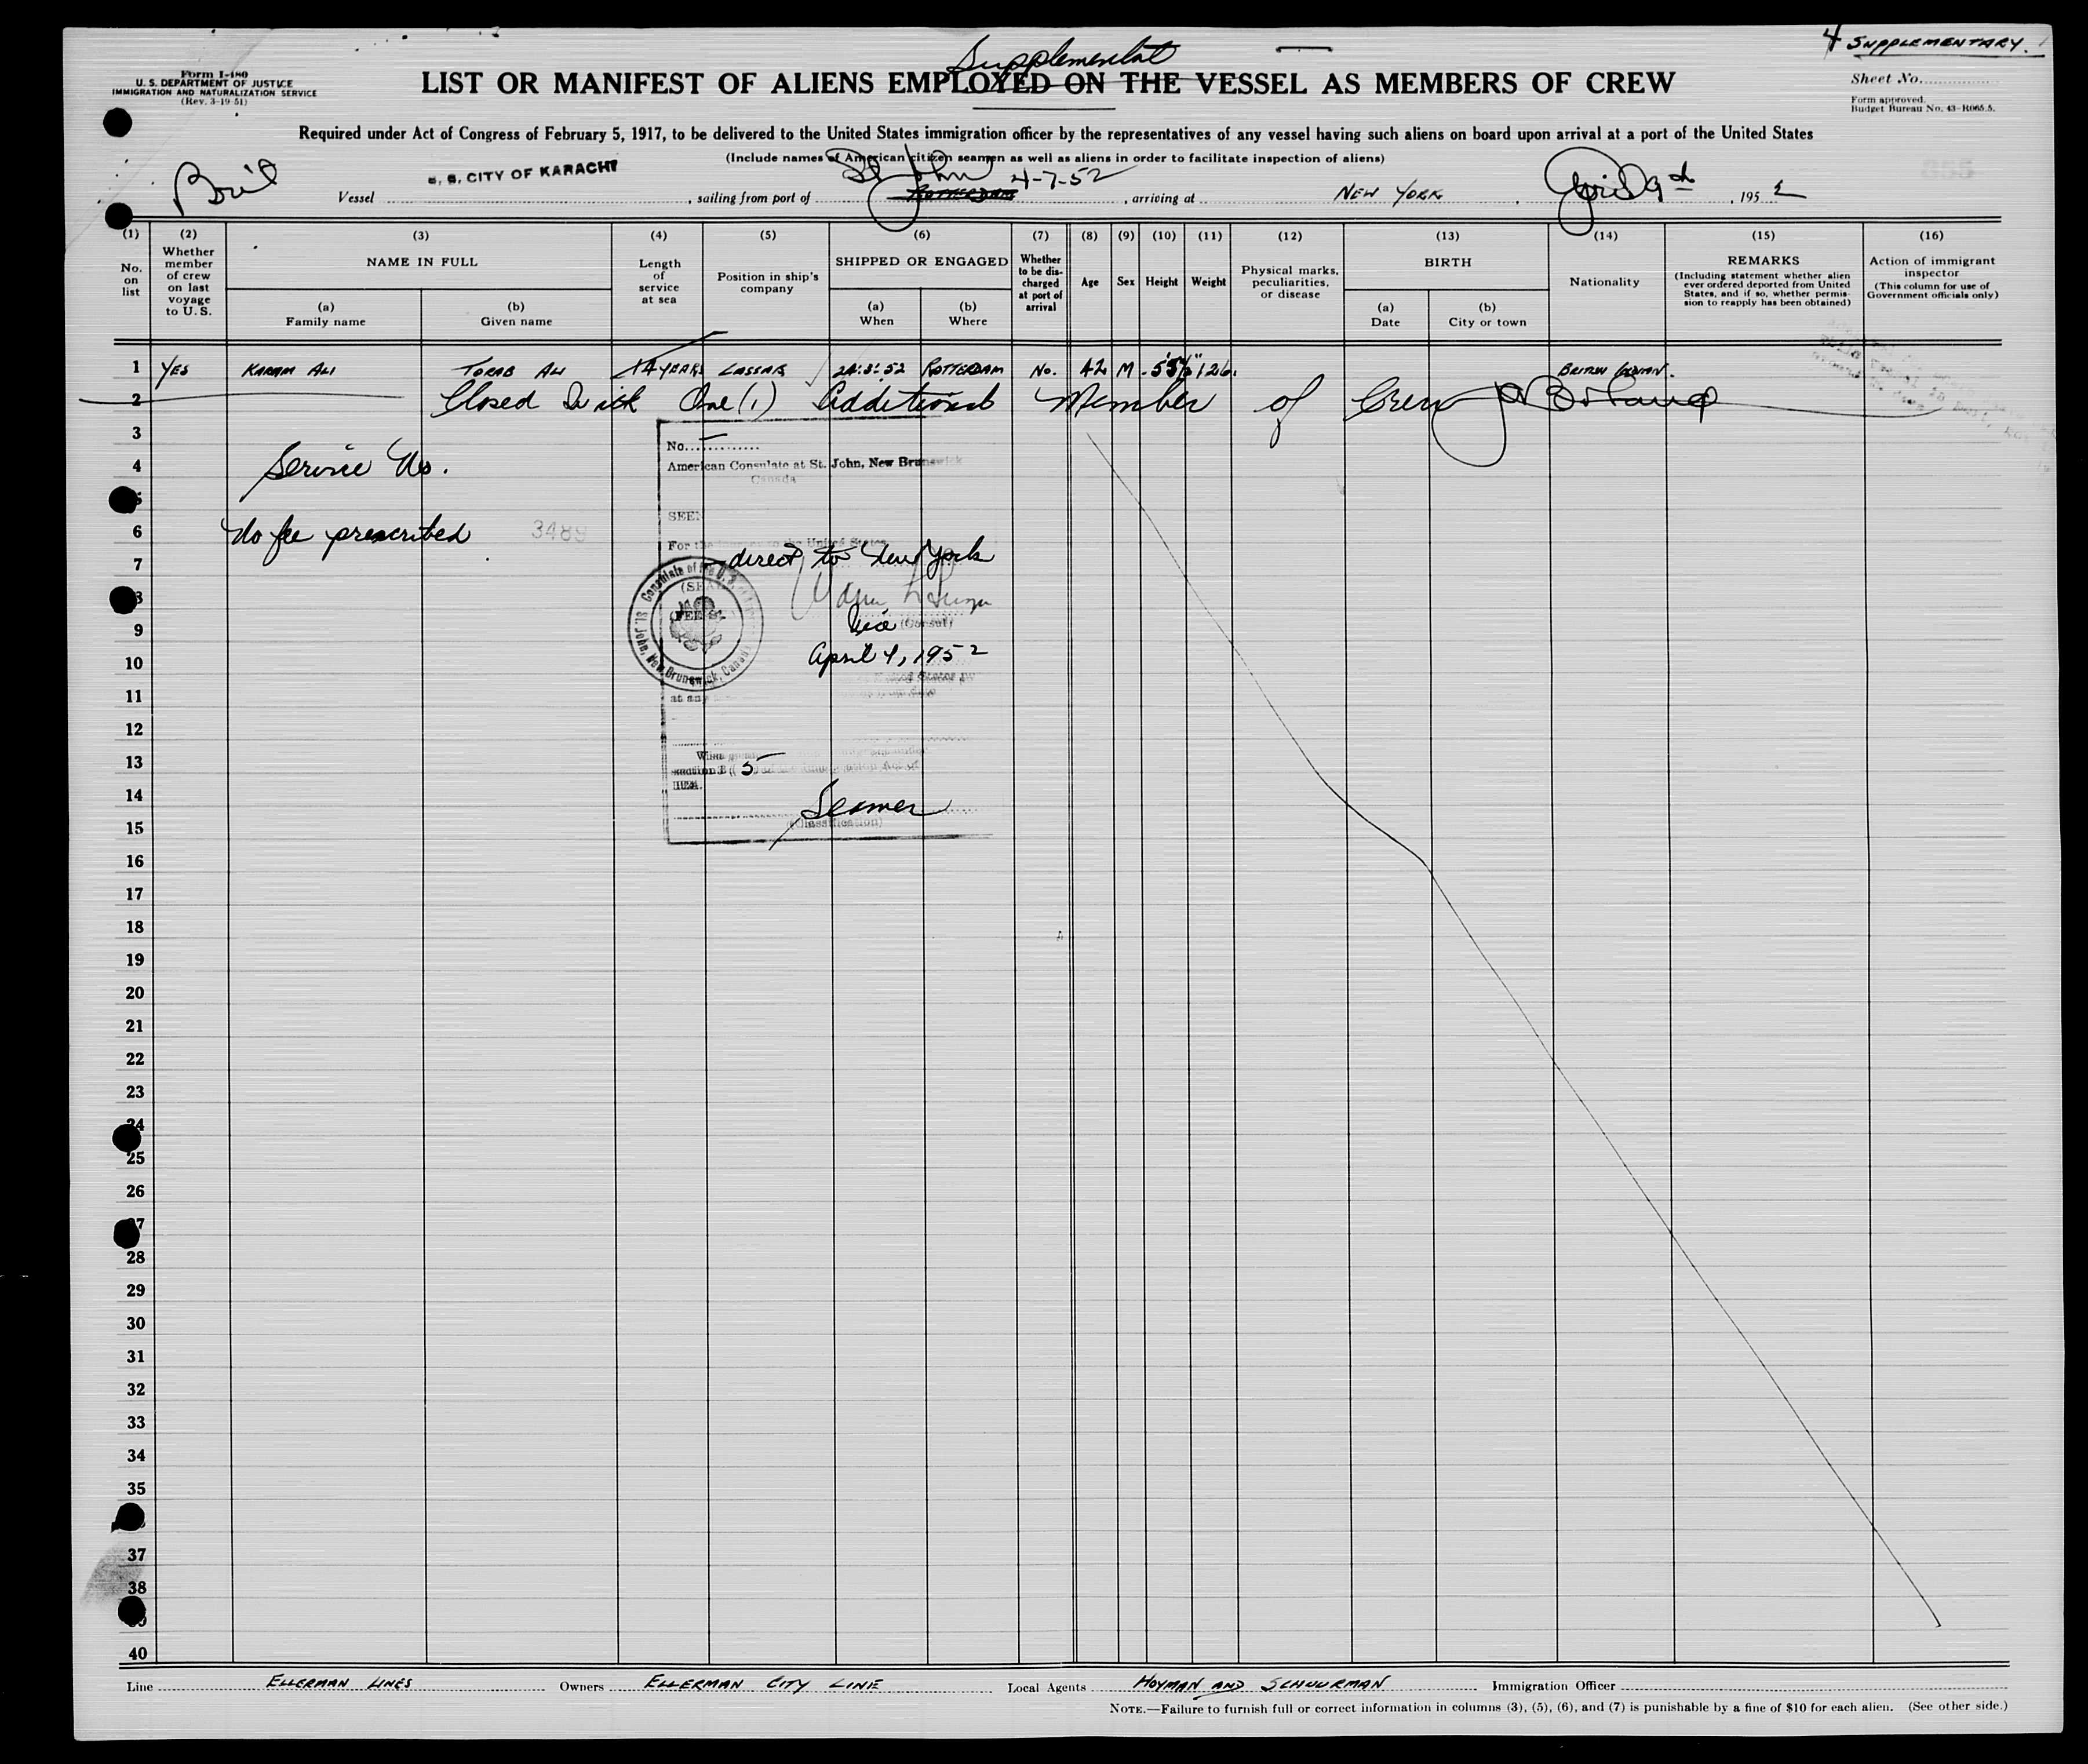 Supplemental
4 SUPPLEMENTARY.
Form I-480
U. S. DEPARTMENT OF JUSTICE
IMMIGRATION AND NATURALIZATION SERVICE
(Rev. 3-19-51)
LIST OR MANIFEST OF ALIENS EMPLOYED ON THE VESSEL AS MEMBERS OF CREW
Sheet No.
Form approved.
Budget Bureau No. 43-R065.5.
Required under Act of Congress of February 5, 1917, to be delivered to the United States immigration officer by the representatives of any vessel having such aliens on board upon arrival at a port of the United States
(Include names of American citizen seamen as well as aliens in order to facilitate inspection of aliens)
355
St John 4-7-52
Vessel S. S. CITY OF KARACHI, sailing from port of ROTTERDAM, arriving at NEW YORK, April 9th, 1952
(1) (2) (3) (4) (5) (6) (7) (8) (9) (10) (11) (12) (13) (14) (15) (16)
No. on list
Whether member of crew on last voyage to U. S.
NAME IN FULL
(a) Family name
(b) Given name
Length of service at sea
Position in ship's company
SHIPPED OR ENGAGED
(a) When
(b) Where
Whether to be discharged at port of arrival
Age
Sex
Height
Weight
Physical marks, peculiarities, or disease
BIRTH
(a) Date
(b) City or town
Nationality
REMARKS
(Including statement whether alien ever ordered deported from United States, and if so, whether permission to reapply has been obtained)
Action of immigrant inspector
(This column for use of Government officials only)
1 YES KARAM ALI TORAB ALI 14 YEARS LASSAR 24:3:52 ROTTERDAM No. 42 M 126. BRITISH
2 Closed With One (1) Additional Member of Crew
3
No.
4 Service No.
American Consulate at St. John, New Brunswick
Canada
SEEN
6 No fee prescribed 3489
For the to the United States
7 direct to New York
(SEAL)
Consulate of the U. S. St. John, New Brunswick, Canada
9 Vice (Consul)
10 April 7, 1952
11 at any
12
13 When under
section 3 (5) of the Immigration Act of
1924.
14 Seamen
15 (Classification)
16
17
18
19
20
21
22
23
24
25
26
27
28
29
30
31
32
33
34
35
37
38
40
Line ELLERMAN LINES Owners ELLERMAN CITY LINE Local Agents HOYMAN AND SCHUURMAN Immigration Officer
NOTE.—Failure to furnish full or correct information in columns (3), (5), (6), and (7) is punishable by a fine of $10 for each alien. (See other side.)